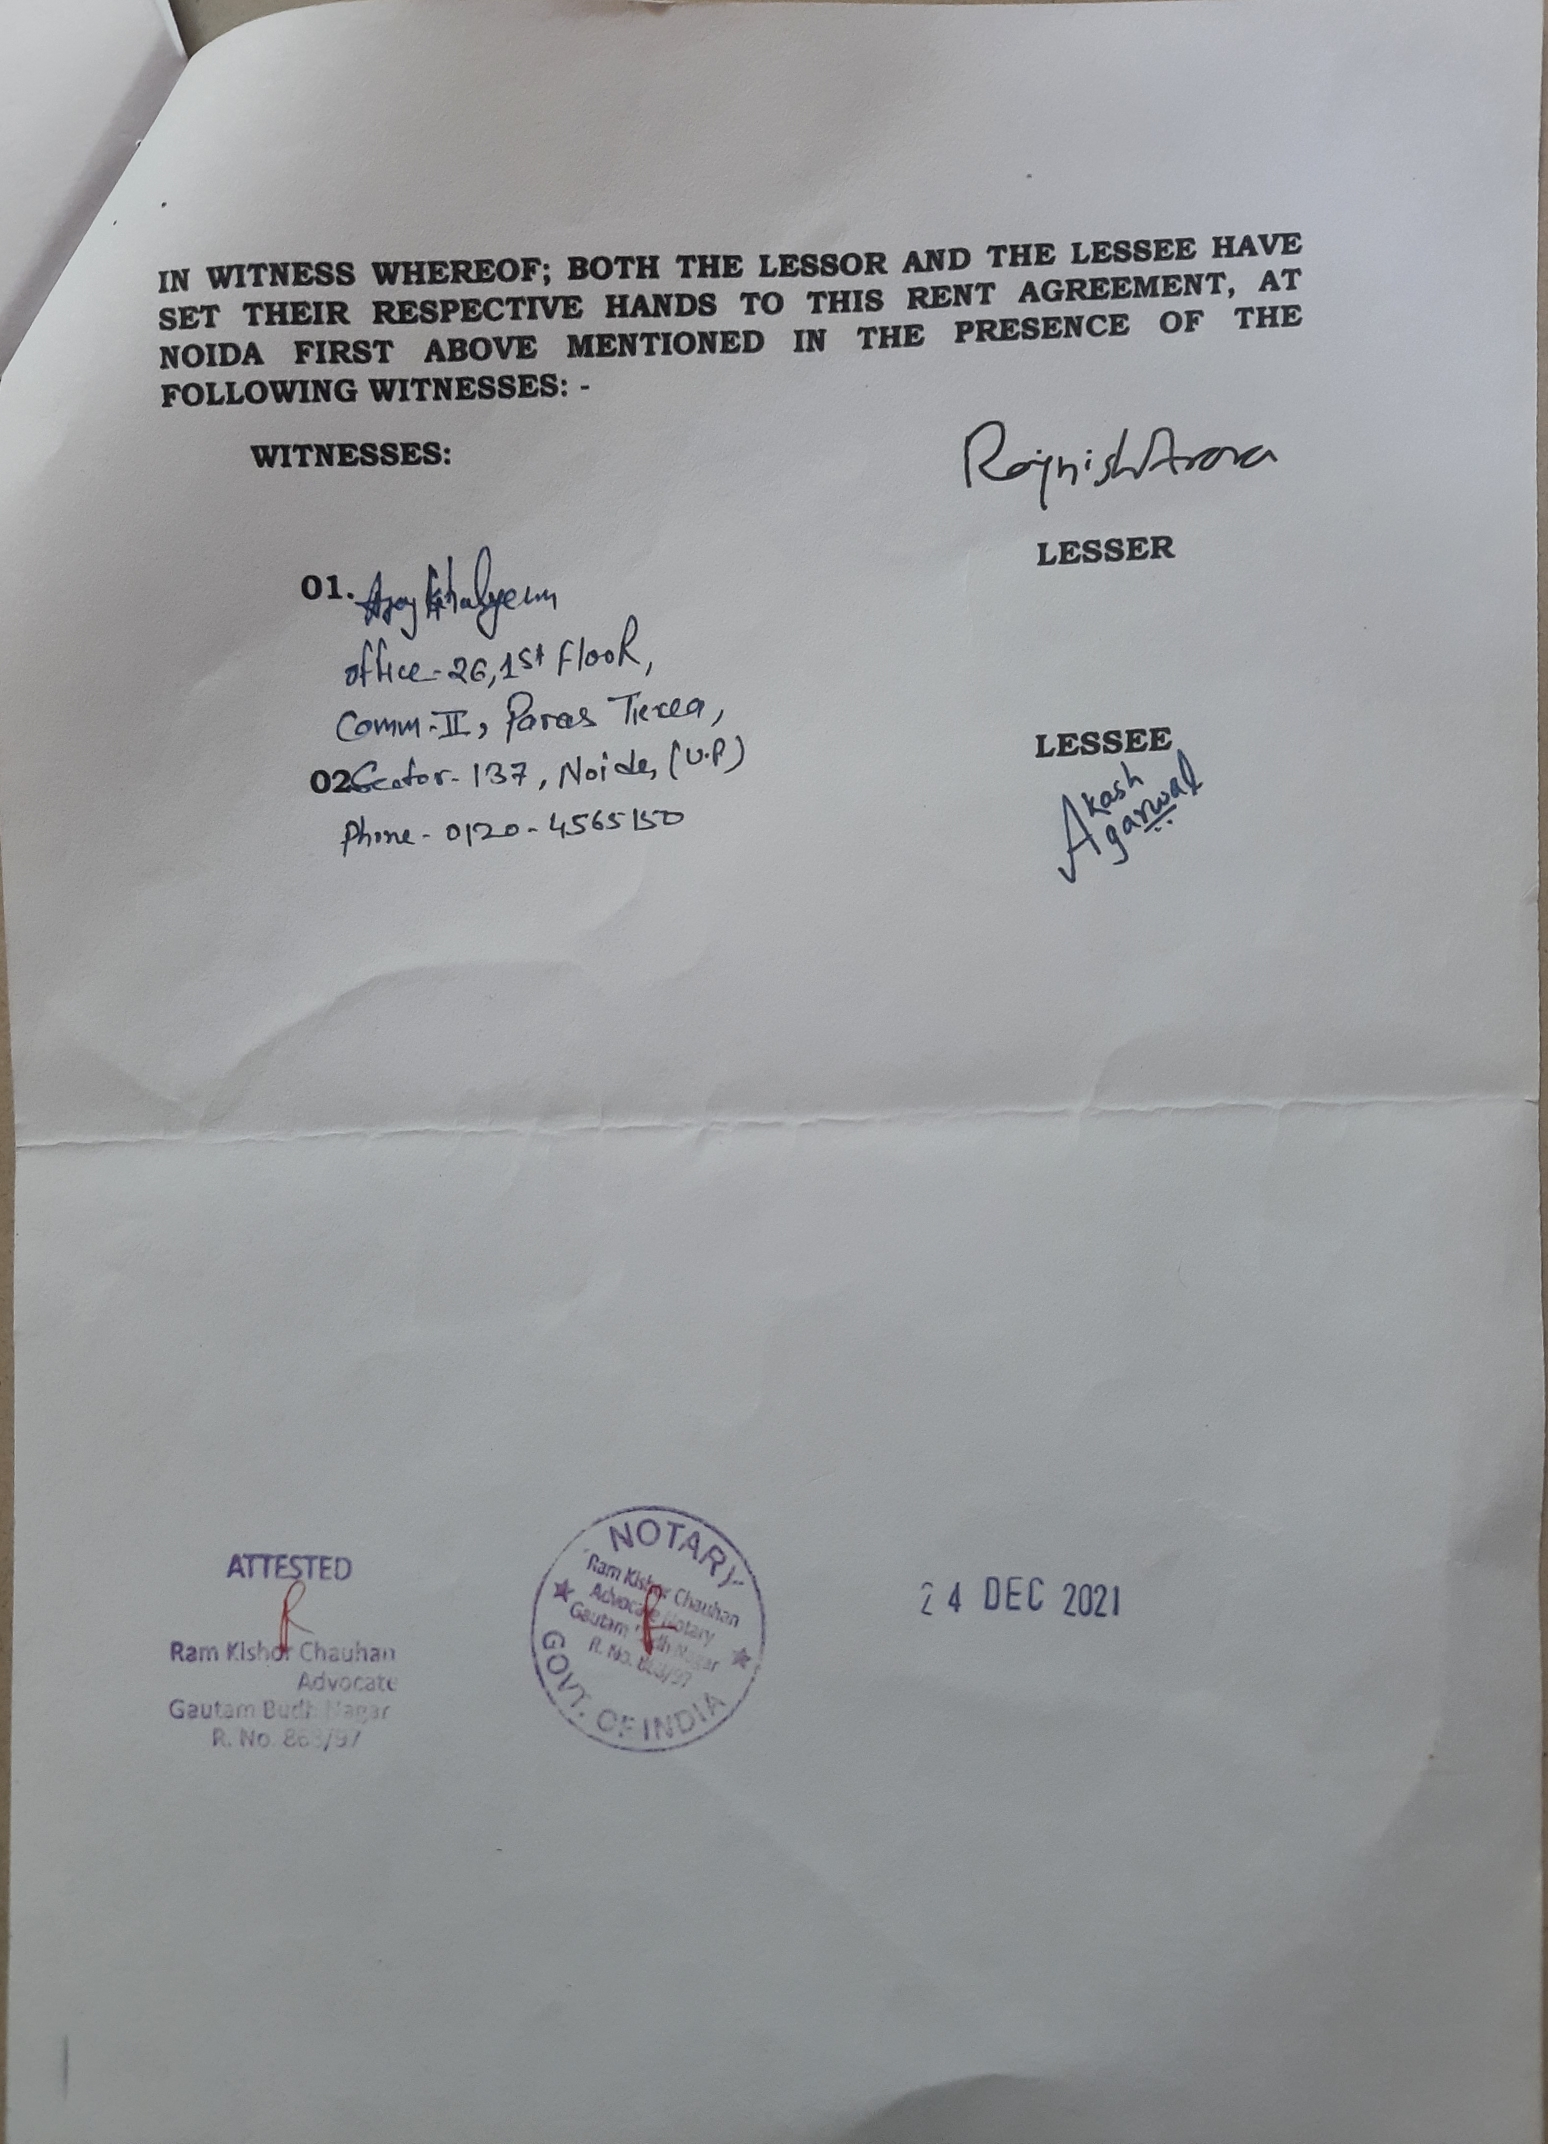 IN WITNESS WHEREOF; BOTH THE LESSOR AND THE LESSEE HAVE
SET THEIR RESPECTIVE HANDS TO THIS RENT AGREEMENT, AT
NOIDA FIRST ABOVE MENTIONED IN THE PRESENCE OF THE
FOLLOWING WITNESSES: -
WITNESSES:
Rajnish Arora
LESSER
01.
office-26, 1st Floor,
Comm-II, Paras Tierea,
LESSEE
Akash
Agarwal
02 Sector-137, Noida, (U.P)
Phone-0120-4565150
ATTESTED
Ram Kishor Chauhan
Advocate
Gautam Budh Nagar
R. No. /97
NOTARY
Ram Kishor Chauhan
Advocate Notary
Gautam Budh Nagar
R. No. /97
GOVT. OF INDIA
24 DEC 2021